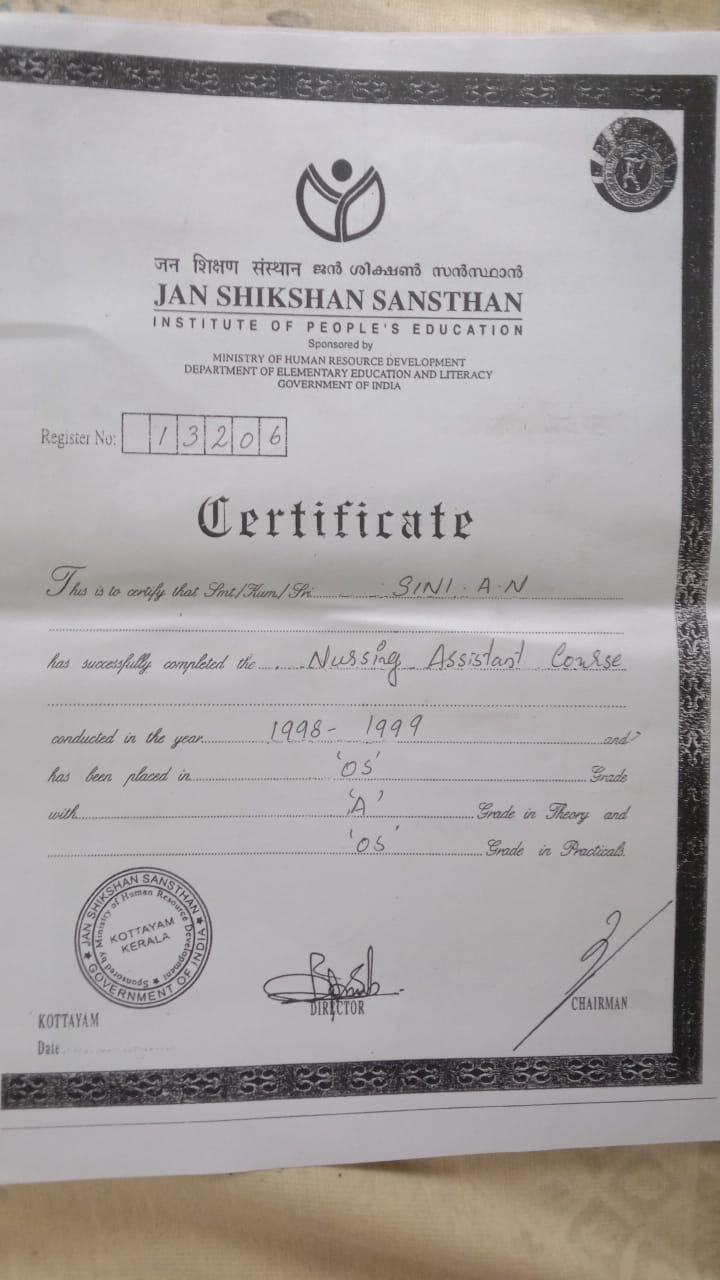 जन शिक्षण संस्थान ജൻ ശിക്ഷൺ സൻസ്ഥാൻ
JAN SHIKSHAN SANSTHAN
INSTITUTE OF PEOPLE'S EDUCATION
Sponsored by
MINISTRY OF HUMAN RESOURCE DEVELOPMENT
DEPARTMENT OF ELEMENTARY EDUCATION AND LITERACY
GOVERNMENT OF INDIA
Register No: 13206
Certificate
This is to certify that Smt/Kum/Sri. SINI. A.N
has successfully completed the Nursing Assistant Course
conducted in the year 1998- 1999 and
has been placed in 'OS' Grade
with 'A' Grade in Theory and
'OS' Grade in Practicals.
JAN SHIKSHAN SANSTHAN
Sponsored by Ministry of Human Resource Development
GOVERNMENT OF INDIA
KOTTAYAM
KERALA
DIRECTOR
CHAIRMAN
KOTTAYAM
Date